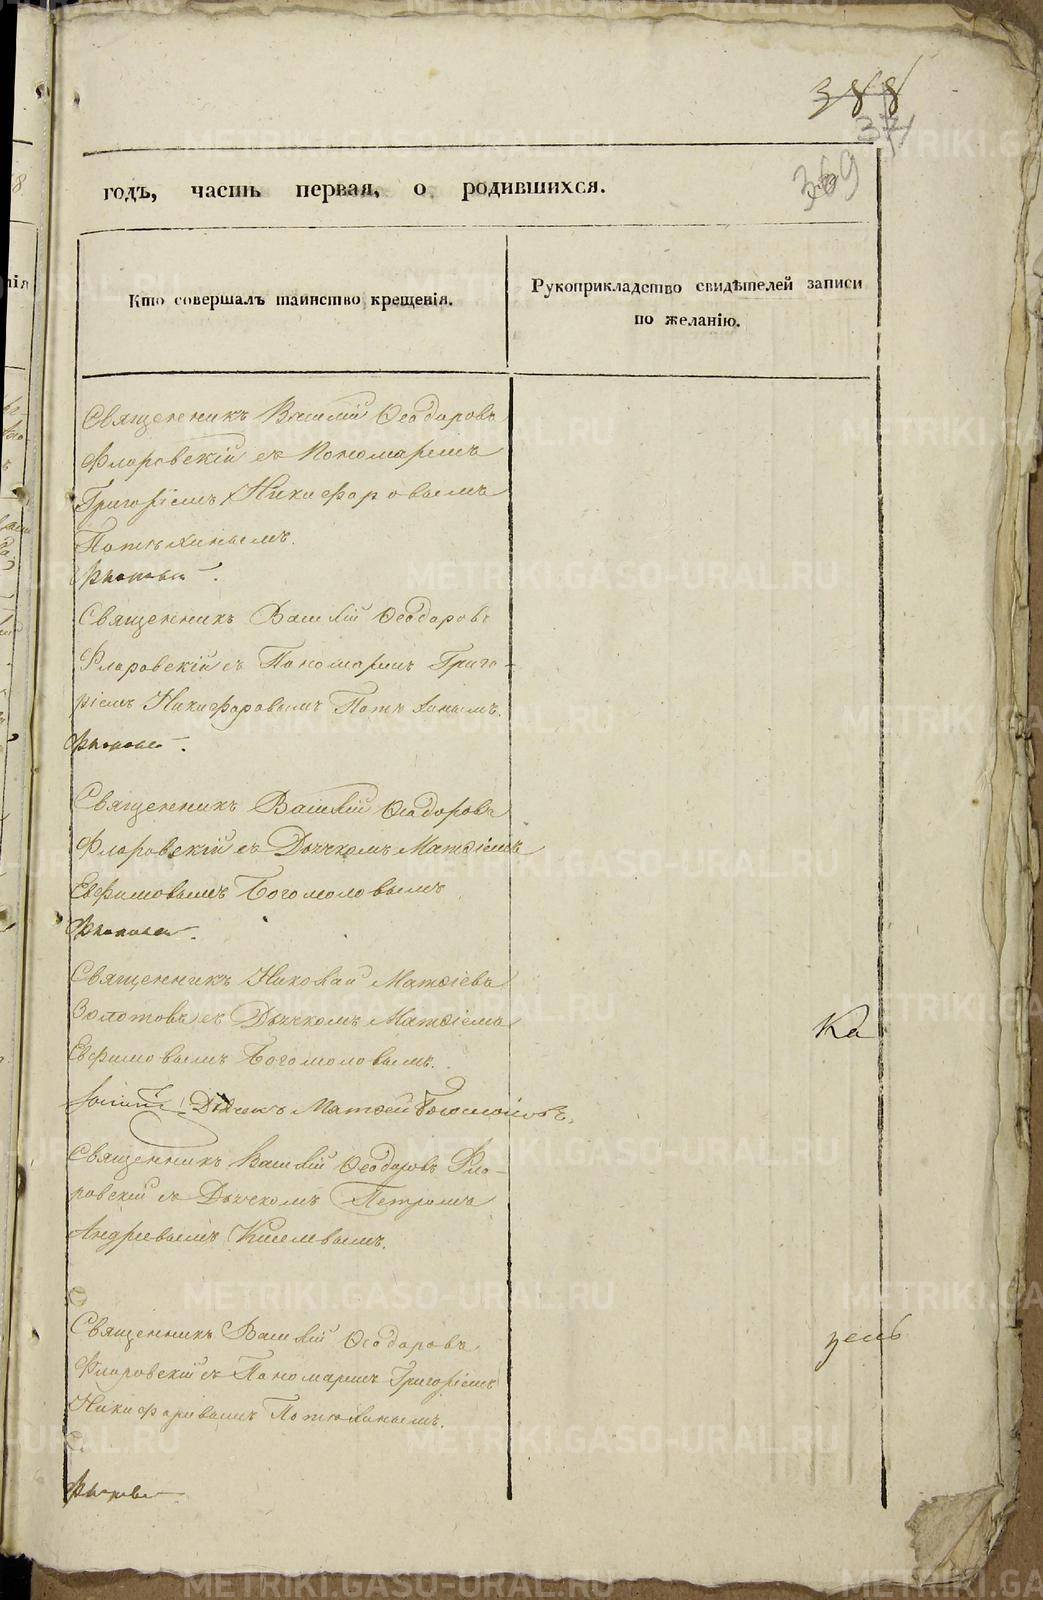 388
371
369
годъ, часть первая, о родившихся.
Кто совершалъ таинство крещенія.
Рукоприкладство свидѣтелей записи
по желанію.
Священникъ Василій Ѳеодоровъ
Флоровскій съ Пономаремъ
Григоріемъ Никифоровымъ
Потѣхинымъ.
Священникъ Василій Ѳеодоровъ
Флоровскій съ Пономаремъ Григо-
ріемъ Никифоровымъ Потѣхинымъ.
Священникъ Василій Ѳеодоровъ
Флоровскій съ Дьячкомъ Матѳіемъ
Евфимовымъ Богомоловымъ
Священникъ Николай Матѳіевъ
Золотовъ съ Дьячкомъ Матѳіемъ
Евфимовымъ Богомоловымъ.
Дьячекъ Матѳей Богомоловъ.
Ка
Священникъ Василій Ѳеодоровъ Фло-
ровскій съ Дьячкомъ Петромъ
Андреевымъ Киселевымъ.
Священникъ Василій Ѳеодоровъ
Флоровскій съ Пономаремъ Григоріемъ
Никифоровымъ Потѣхинымъ.
зень
METRIKI.GASO-URAL.RU